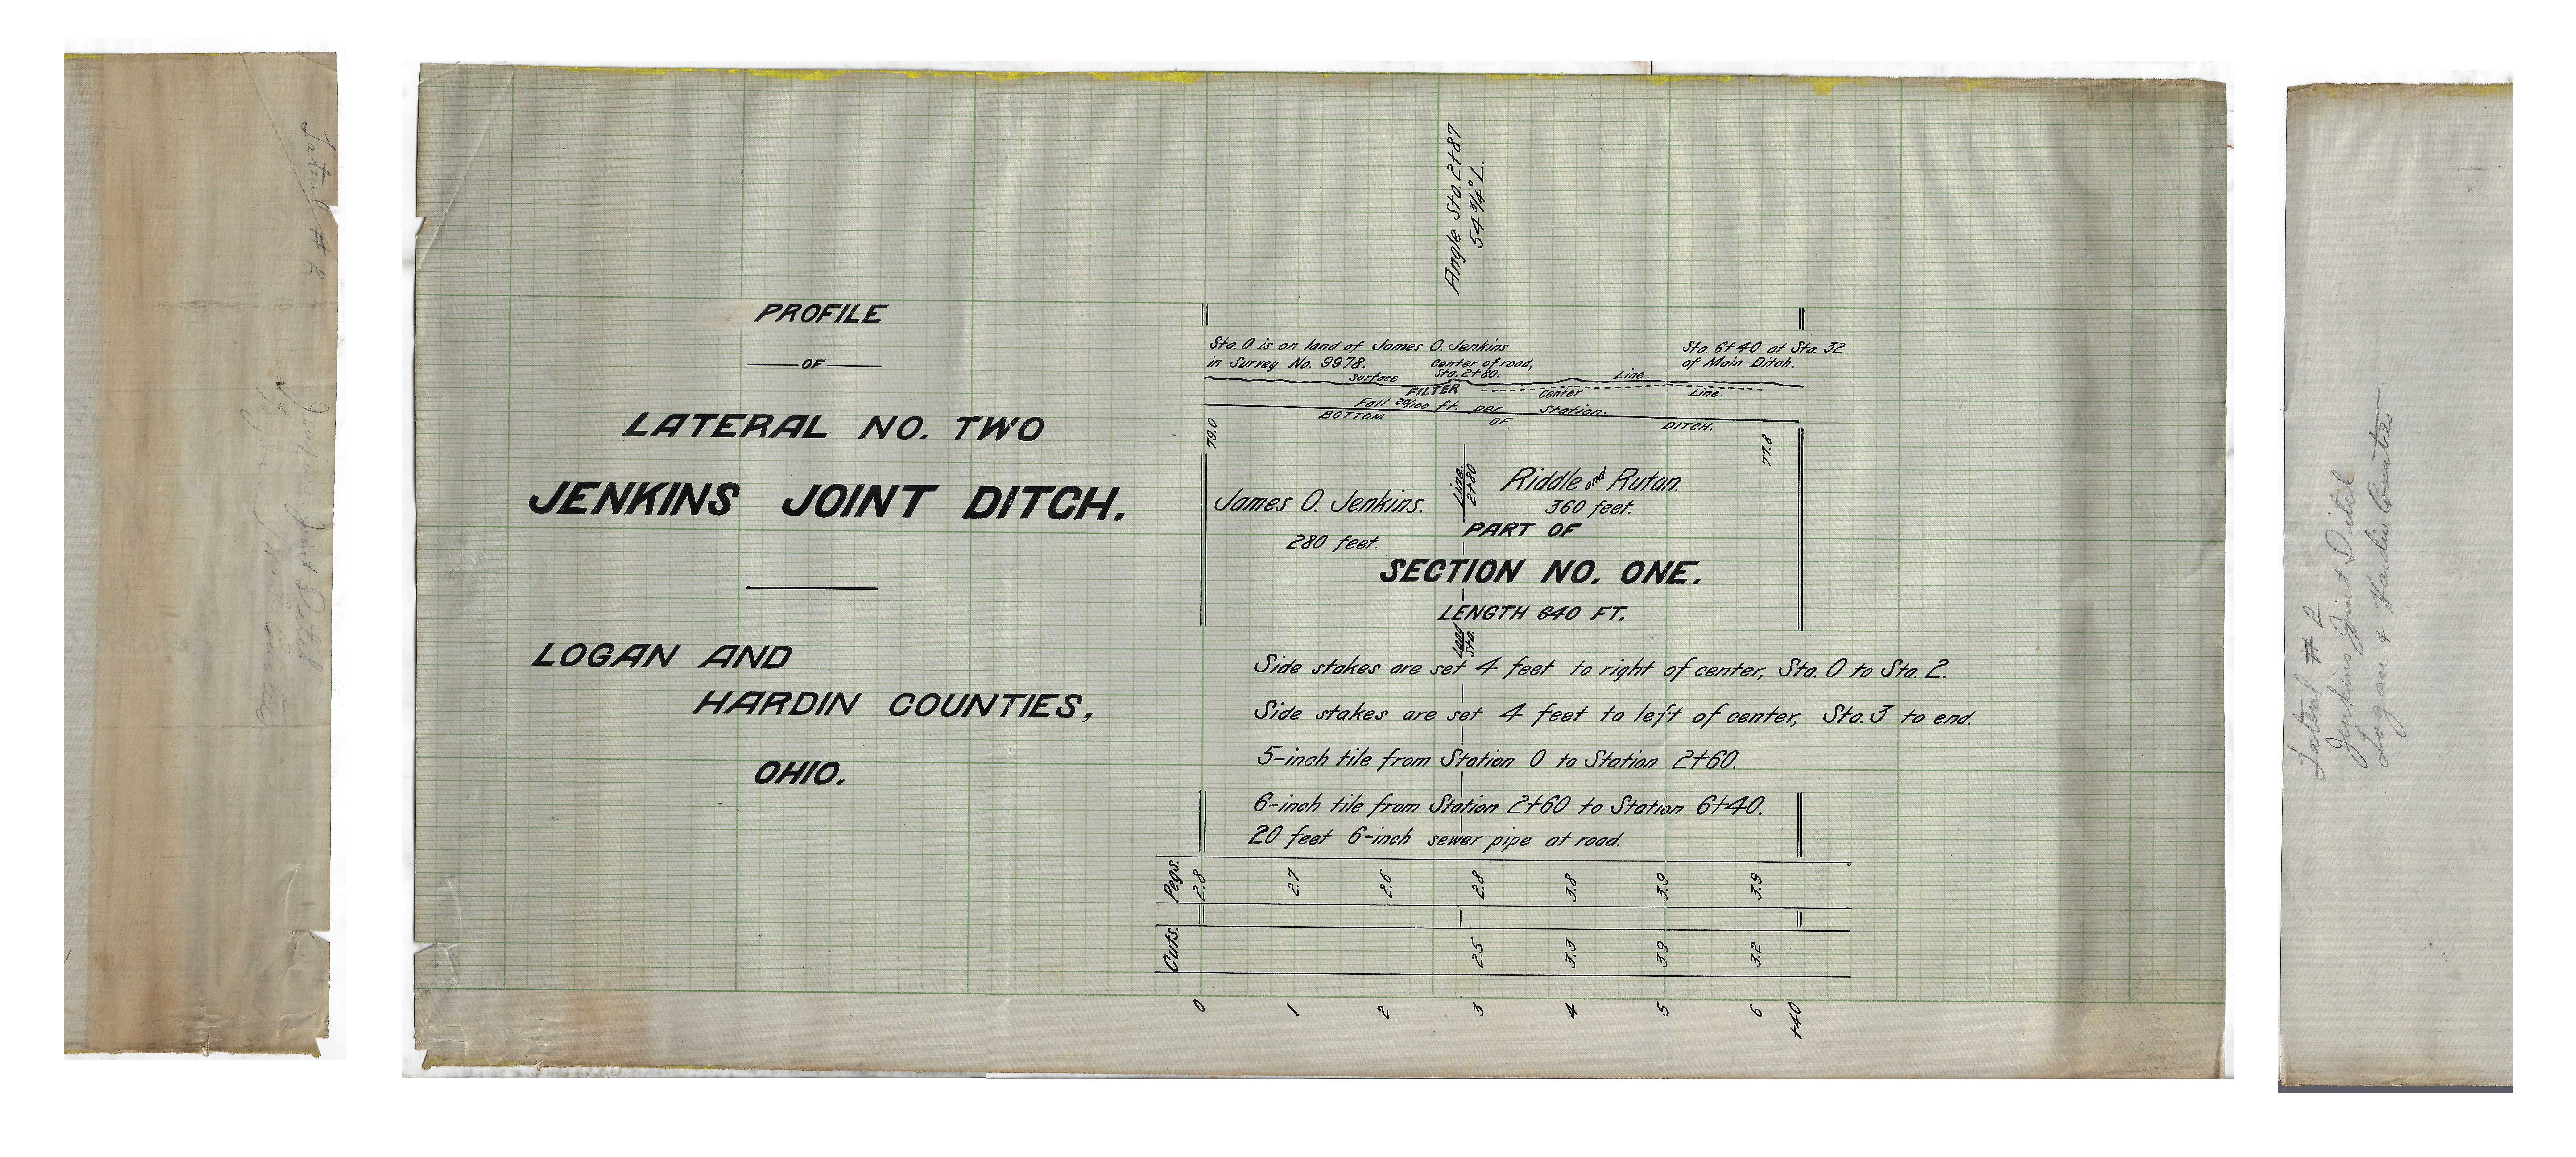 Lateral # 2
Jenkins Joint Ditch
PROFILE
OF
LATERAL NO. TWO
JENKINS JOINT DITCH.
LOGAN AND
HARDIN COUNTIES,
OHIO.
Angle Sta. 2+87
54 3/4° L.
Sta. 0 is on land of James O. Jenkins
in Survey No. 9978.
center of road,
Sta. 2+80.
Sta. 6+40 at Sta. 32
of Main Ditch.
Surface Line.
FILTER Center Line.
Fall 20/100 ft. per Station.
BOTTOM OF DITCH.
79.0
77.8
James O. Jenkins.
280 feet.
Line
2+80
Riddle and Rutan.
360 feet.
PART OF
SECTION NO. ONE.
LENGTH 640 FT.
Land
Sta.
Side stakes are set 4 feet to right of center, Sta. 0 to Sta. 2.
Side stakes are set 4 feet to left of center, Sta. 3 to end.
5-inch tile from Station 0 to Station 2+60.
6-inch tile from Station 2+60 to Station 6+40.
20 feet 6-inch sewer pipe at road.
Pegs. 2.8 2.7 2.6 2.8 3.8 3.9 3.9
Cuts. 2.5 3.3 3.9 3.2
0 1 2 3 4 5 6 +40
Lateral # 2
Jenkins Joint Ditch
Logan & Hardin Counties